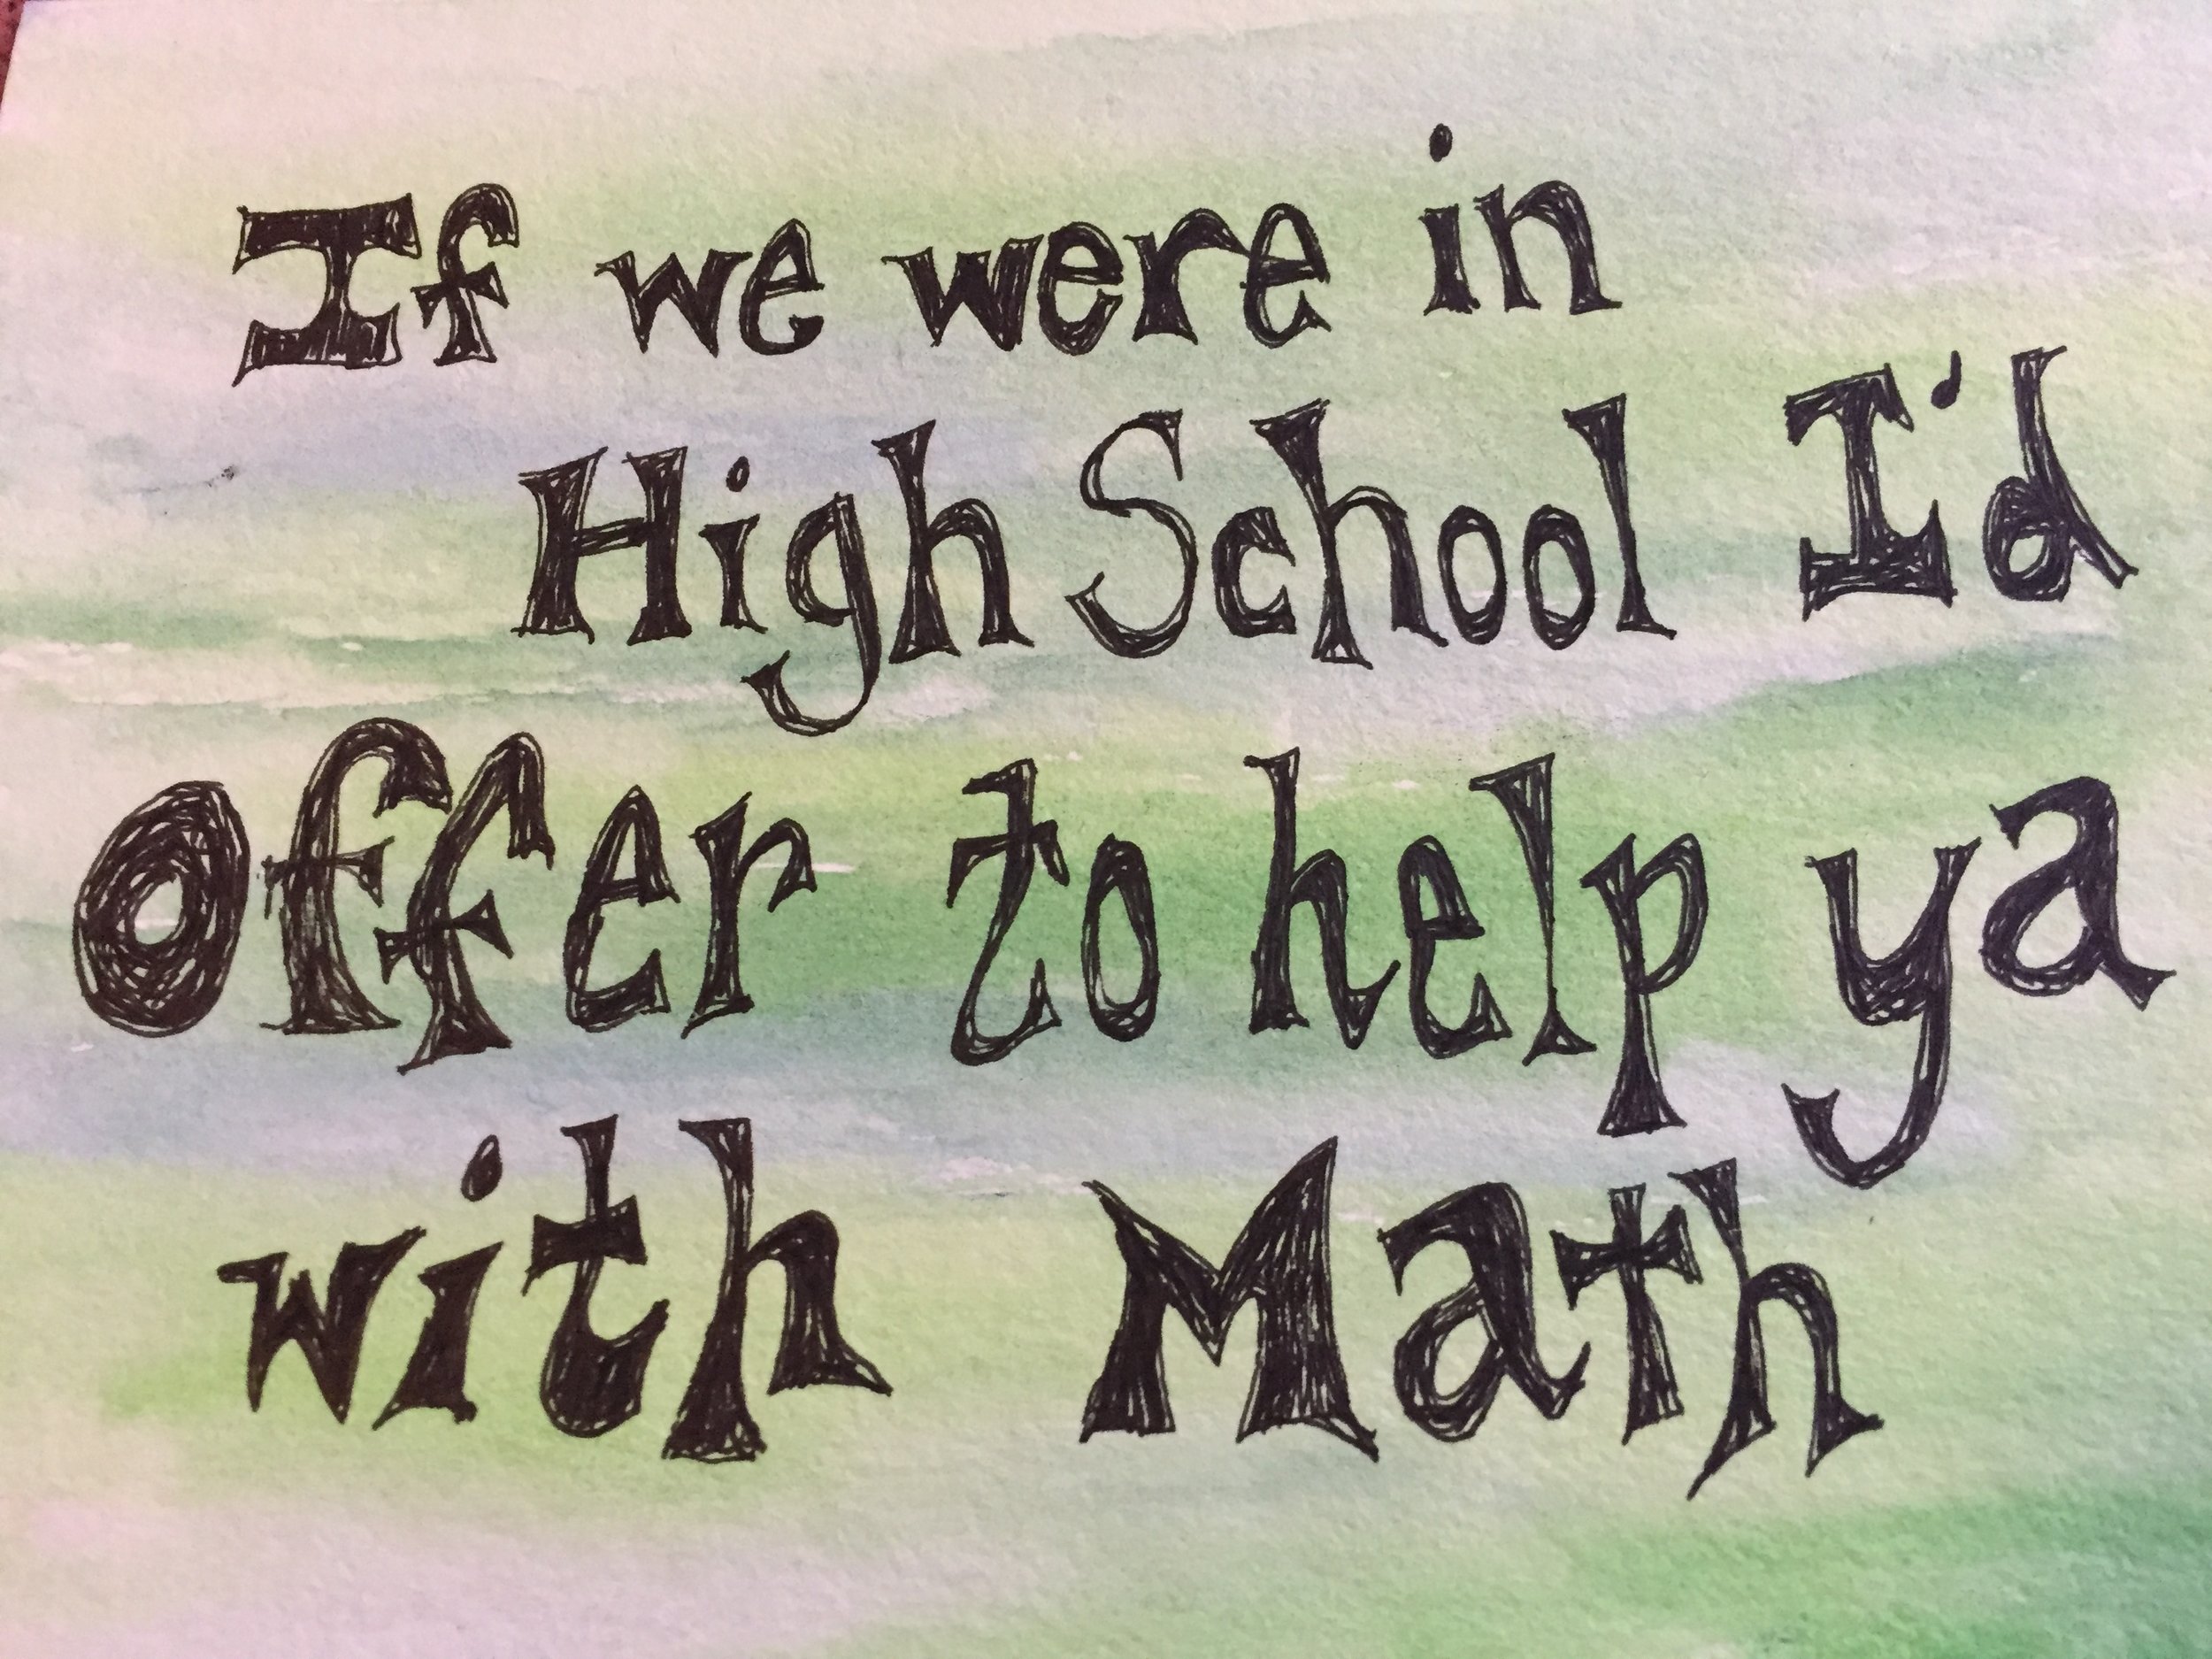 If we were in
High School I'd
Offer to help ya
with Math